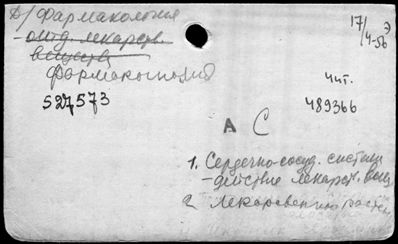 Д/ Фармакология
отд. лекарств.
веществ
Фармакогнозия
527573
17/4-56
Э
Чит.
489366
А С
1. Сердечно-сосуд. система
- действие лекарств. вещ
2 Лекарственно растен